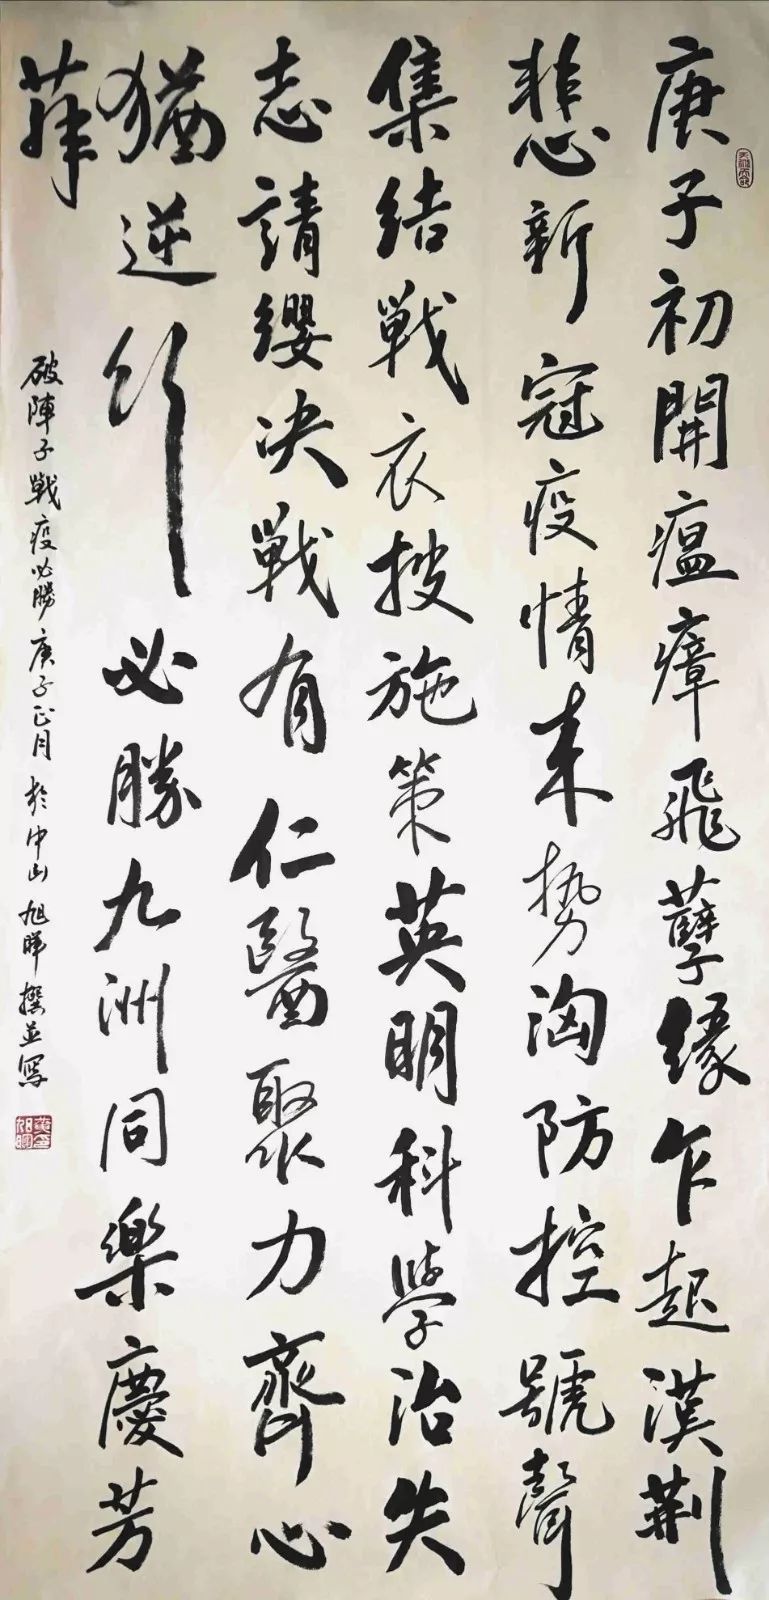 庚子初開瘟瘴飛孽緣乍起漢荆
悲新冠疫情来势洶防控號聲
集结戰衣披施策英明科學治矢
志請缨决戰有仁醫聚力齊心
猶逆行必勝九洲同樂慶芳
華
破陣子戰疫必勝庚子正月於中山旭暉撰並寫